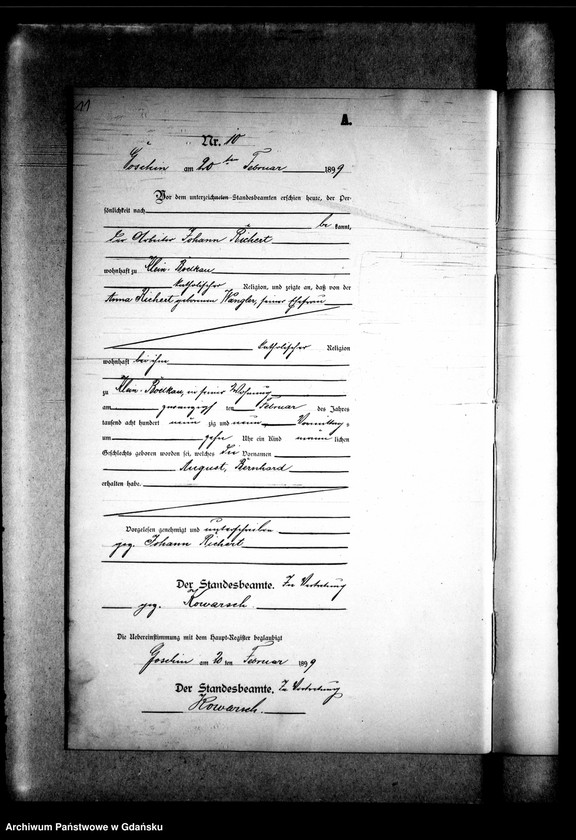 11
A.
Nr. 10
Goschin am 20ten Februar 1899
Vor dem unterzeichneten Standesbeamten erschien heute, der Per-
sönlichkeit nach
be kannt,
der Arbeiter Johann Richert
wohnhaft zu Klein-Boelkau
katholischer Religion, und zeigte an, daß von der
Anna Richert geborenen Wangler, seiner Ehefrau
katholischer Religion
wohnhaft bei ihm
zu Klein-Boelkau, in seiner Wohnung
am ten Februar des Jahres
tausend acht hundert neun zig und neun Vormittags
um zehn Uhr ein Kind männlichen
Geschlechts geboren worden sei, welches die Vornamen
August, Bernhard
erhalten habe.
Vorgelesen genehmigt und unterschrieben
gez. Johann Richert
Der Standesbeamte. In Vertretung
gez. Kowarsch
Die Uebereinstimmung mit dem Haupt-Register beglaubigt
Goschin am 20 ten Februar 1899
Der Standesbeamte. In Vertretung
Kowarsch.
Archiwum Państwowe w Gdańsku